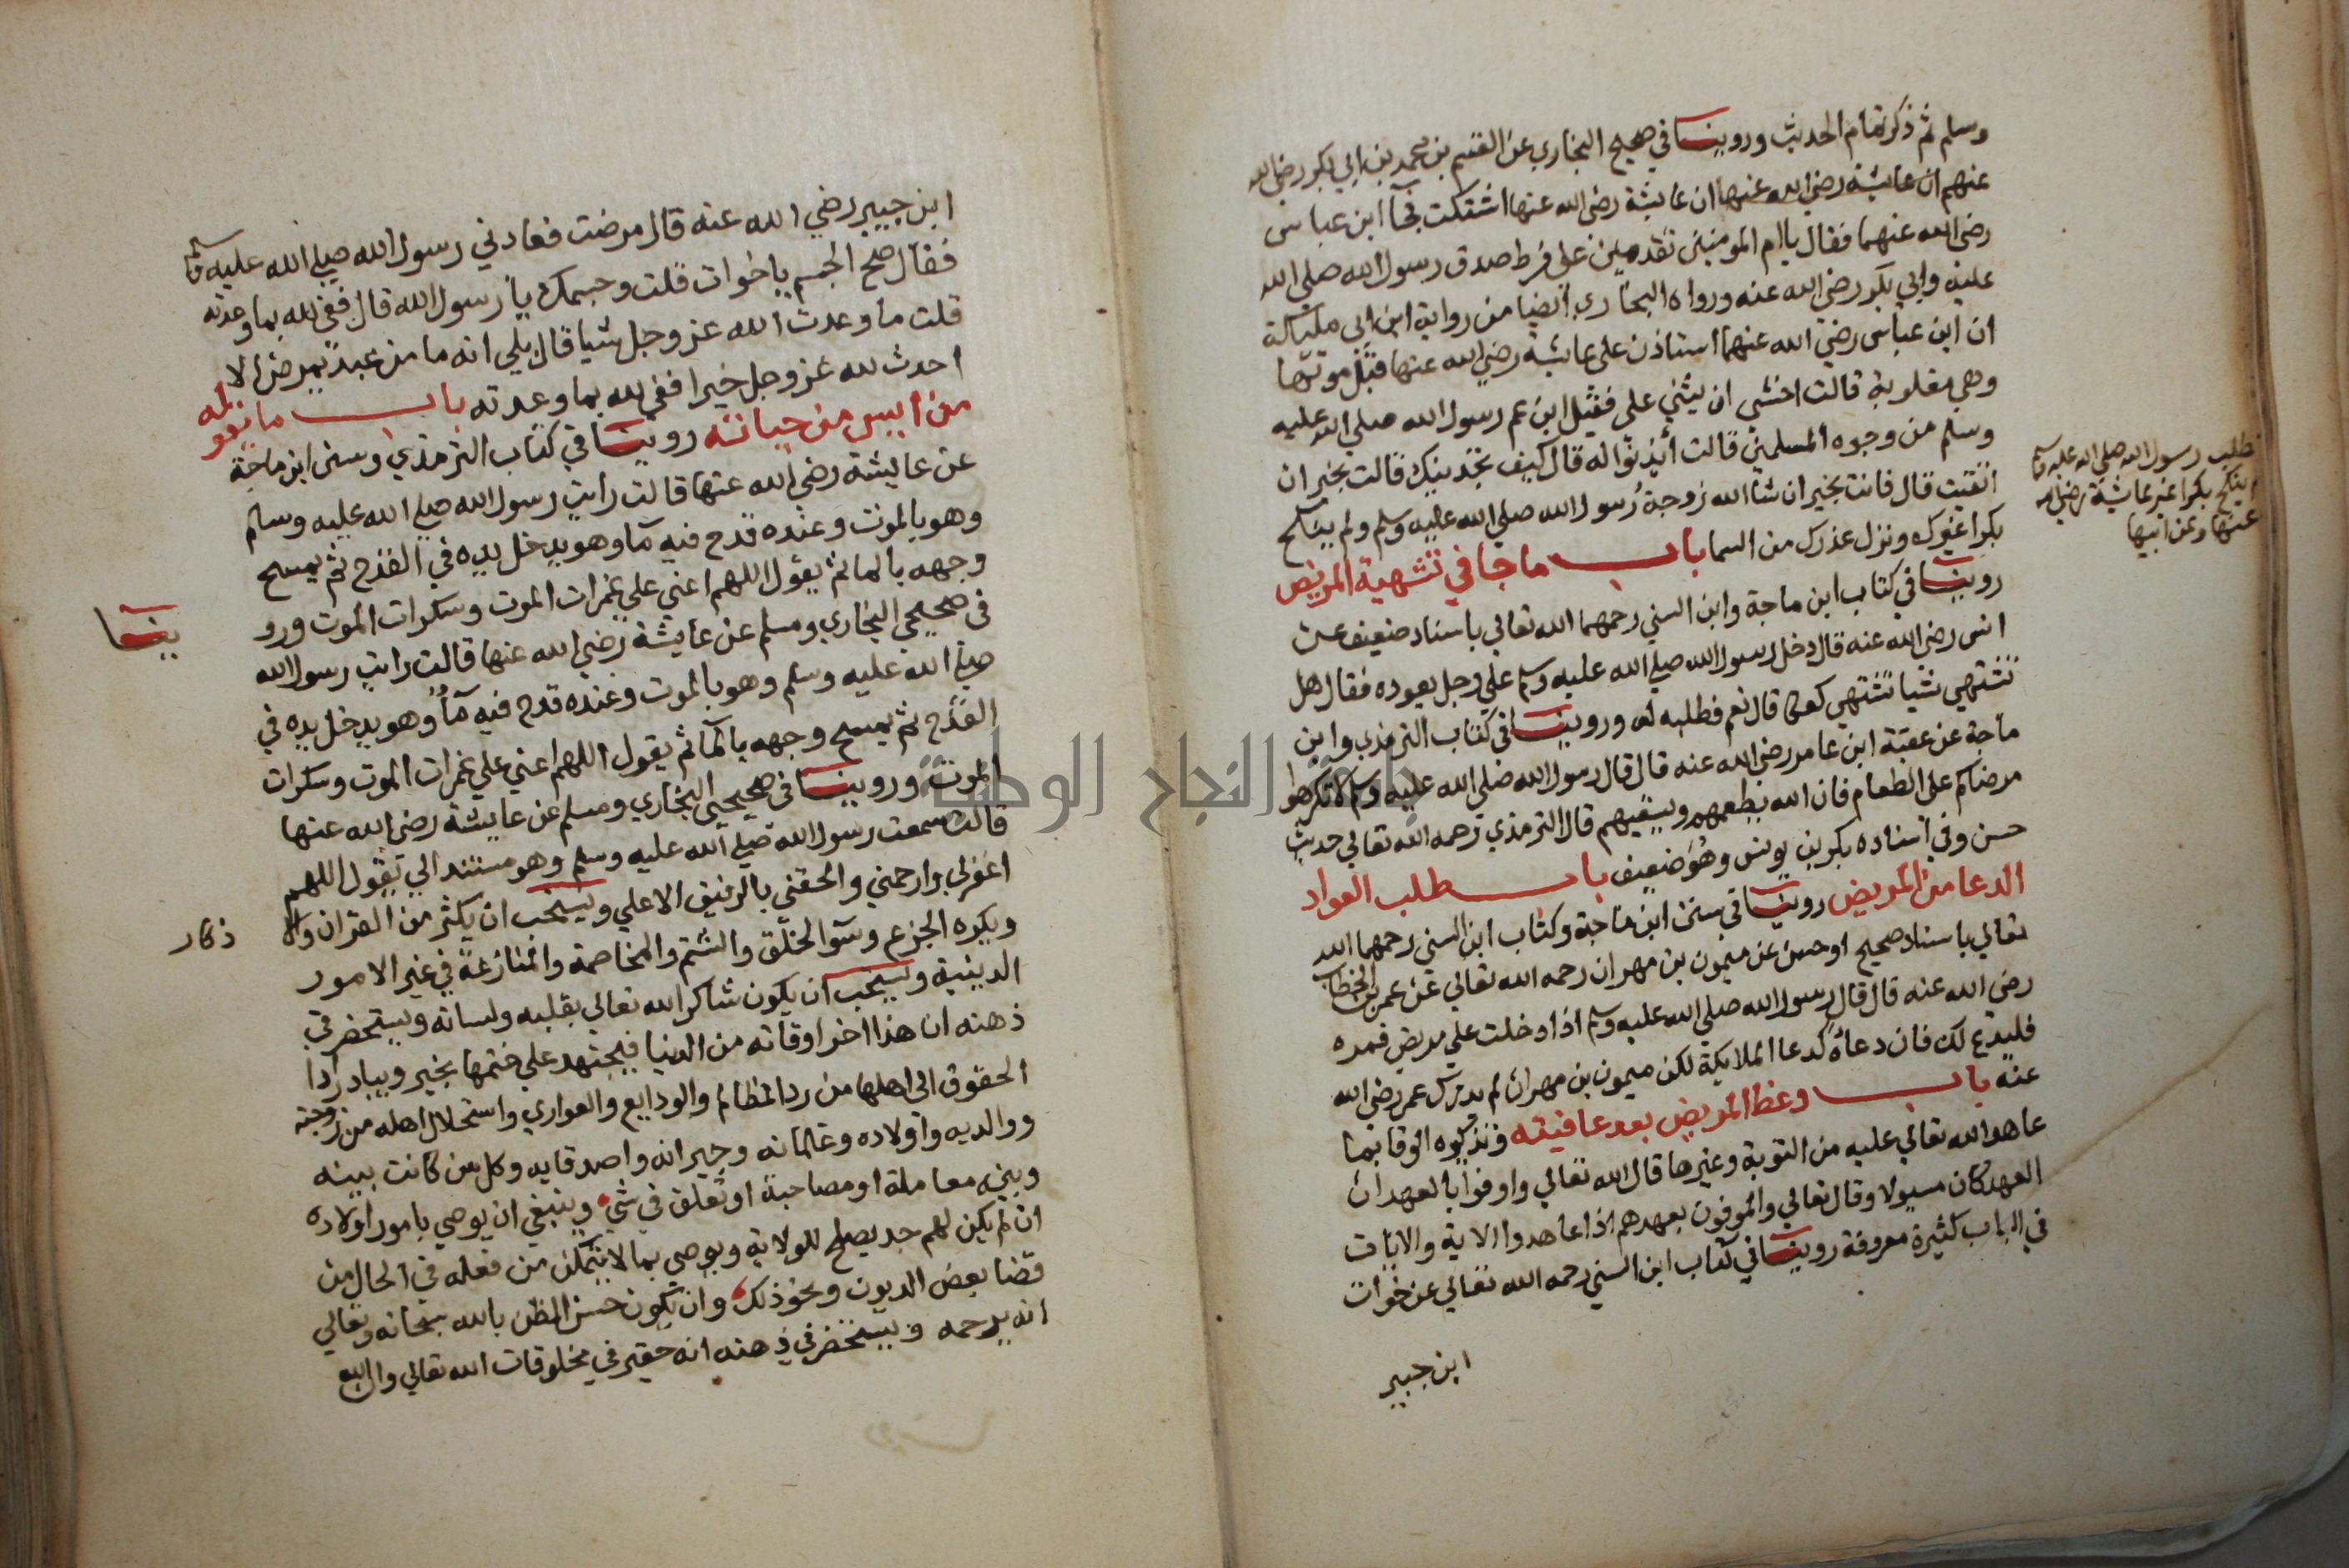 وسلم ثم ذكر تمام الحديث وروينا في صحيح البخاري عن القسم بن محمد بن ابي بكر رضي الله
عنهم ان عايشة رضي الله عنها ان عايشة رضي الله عنها اشتكت فجآ ابن عباس
رضي الله عنهما فقال يا ام المومنين تقدمين على فرط صدق رسول الله صلي الله
عليه وابي بكر رضي الله عنه ورواه البخاري ايضا من رواية ابن ابي مليكة
ان ابن عباس رضي الله عنهما استاذن على عايشة رضي الله عنها قبل موتها
وهي مغلوبة قالت اخشي ان يثني علي فقيل ابن عم رسول الله صلي الله عليه
وسلم من وجوه المسلمين قالت أئذنوا له قال كيف تجدينك قالت بخير ان
اتقيت قال فانت بخير ان شآ الله زوجة رسول الله صلي الله عليه وسلم ولم ينكح
بكرا غيرك ونزل عذرك من السما باب ما جا في تشهية المريض
روينا في كتاب ابن ماجة وابن السني رحمهما الله تعالي باسناد ضعيف عن
انس رضي الله عنه قال دخل رسول الله صلي الله عليه وسلم علي رجل يعوده فقال هل
تشتهي شيا تشتهي كعكا قال نعم فطلبه له وروينا في كتاب الترمذي وابن
ماجة عن عقبة ابن عامر رضي الله عنه قال قال رسول الله صلي الله عليه وسلم لا تكرهوا
مرضاكم على الطعام فان الله يطعمهم ويسقيهم قال الترمذي رحمه الله تعالي حديث
حسن وفي اسناده بكر بن يونس وهو ضعيف باب طلب العواد
الدعا من المريض روينا في سنن ابن ماجة وكتاب ابن السني رحمهما الله
تعالي باسناد صحيح او حسن عن ميمون بن مهران رحمه الله تعالي عن عمر بن الخطاب
رضي الله عنه قال قال رسول الله صلي الله عليه وسلم اذا دخلت علي مريض فمره
فليدع لك فان دعاه كدعا الملايكة لكن ميمون بن مهران لم يدرك عمر رضي الله
عنه باب وعظ المريض بعد عافيته وتذكيره الوفا بما
عاهد الله تعالي عليه من التوبة وغيرها قال الله تعالي واوفوا بالعهد ان
العهد كان مسيولا وقال تعالي والموفون بعهدهم اذا عاهدوا الاية والايات
في الباب كثيرة معروفة روينا في كتاب ابن السني رحمه الله تعالي عن خوات
ابن جبير
مطلب رسول الله صلي الله عليه وسلم
لم ينكح بكرا غير عايشة رضي الله
عنها وعن ابيها
ابن جبير رضي الله عنه قال مرضت فعادني رسول الله صلي الله عليه وسلم
فقال صح الجسم يا خوات قلت وجسمك يا رسول الله قال فف لله بما وعدته
قلت ما وعدت الله عز وجل شيا قال بلي انه ما من عبد يمرض الا
احدث لله عز وجل خيرا فف لله بما وعدته باب ما يقوله
من ايس من حياته روينا في كتاب الترمذي وسنن ابن ماجة
عن عايشة رضي الله عنها قالت رايت رسول الله صلي الله عليه وسلم
وهو بالموت وعنده قدح فيه مآ وهو يدخل يده في القدح ثم يمسح
وجهه بالما ثم يقول اللهم اعني علي غمرات الموت وسكرات الموت ورو
ينا
في صحيحي البخاري ومسلم عن عايشة رضي الله عنها قالت رايت رسول الله
صلي الله عليه وسلم وهو بالموت وعنده قدح فيه مآ وهو يدخل يده في
القدح ثم يمسح وجهه بالمآ ثم يقول اللهم اعني علي غمرات الموت وسكرات
الموت وروينا في صحيحي البخاري ومسلم عن عايشة رضي الله عنها
قالت سمعت رسول الله صلي الله عليه وسلم وهو مستند الي يقول اللهم
اغفر لي وارحمني والحقني بالرفيق الاعلي ويستحب ان يكثر من القران والا
ذكار
ويكره الجزع وسوآ الخلق والشتم والمخاصمة والمنازعة في غير الامور
الدينية ويستحب ان يكون شاكرا لله تعالي بقلبه ولسانه ويستحضر في
ذهنه ان هذا اخر اوقاته من الدنيا فيجتهد علي ختمها بخير ويبادر ادا
الحقوق الى اهلها من رد المظالم والودايع والعواري واستحلال اهله من زوجته
ووالديه واولاده وغلمانه وجيرانه واصدقايه وكل من كانت بينه
وبينه معاملة او مصاحبة او تعلق في شي وينبغي ان يوصي بامور اولاده
ان لم يكن لهم جد يصلح للولاية ويوصي بما لا يتمكن من فعله في الحال من
قضا بعض الديون ونحو ذلك وان يكون حسن الظن بالله سبحانه وتعالي
انه يرحمه ويستحضر في ذهنه انه حقير في مخلوقات الله تعالي وان الله
جامعة النجاح الوطنية